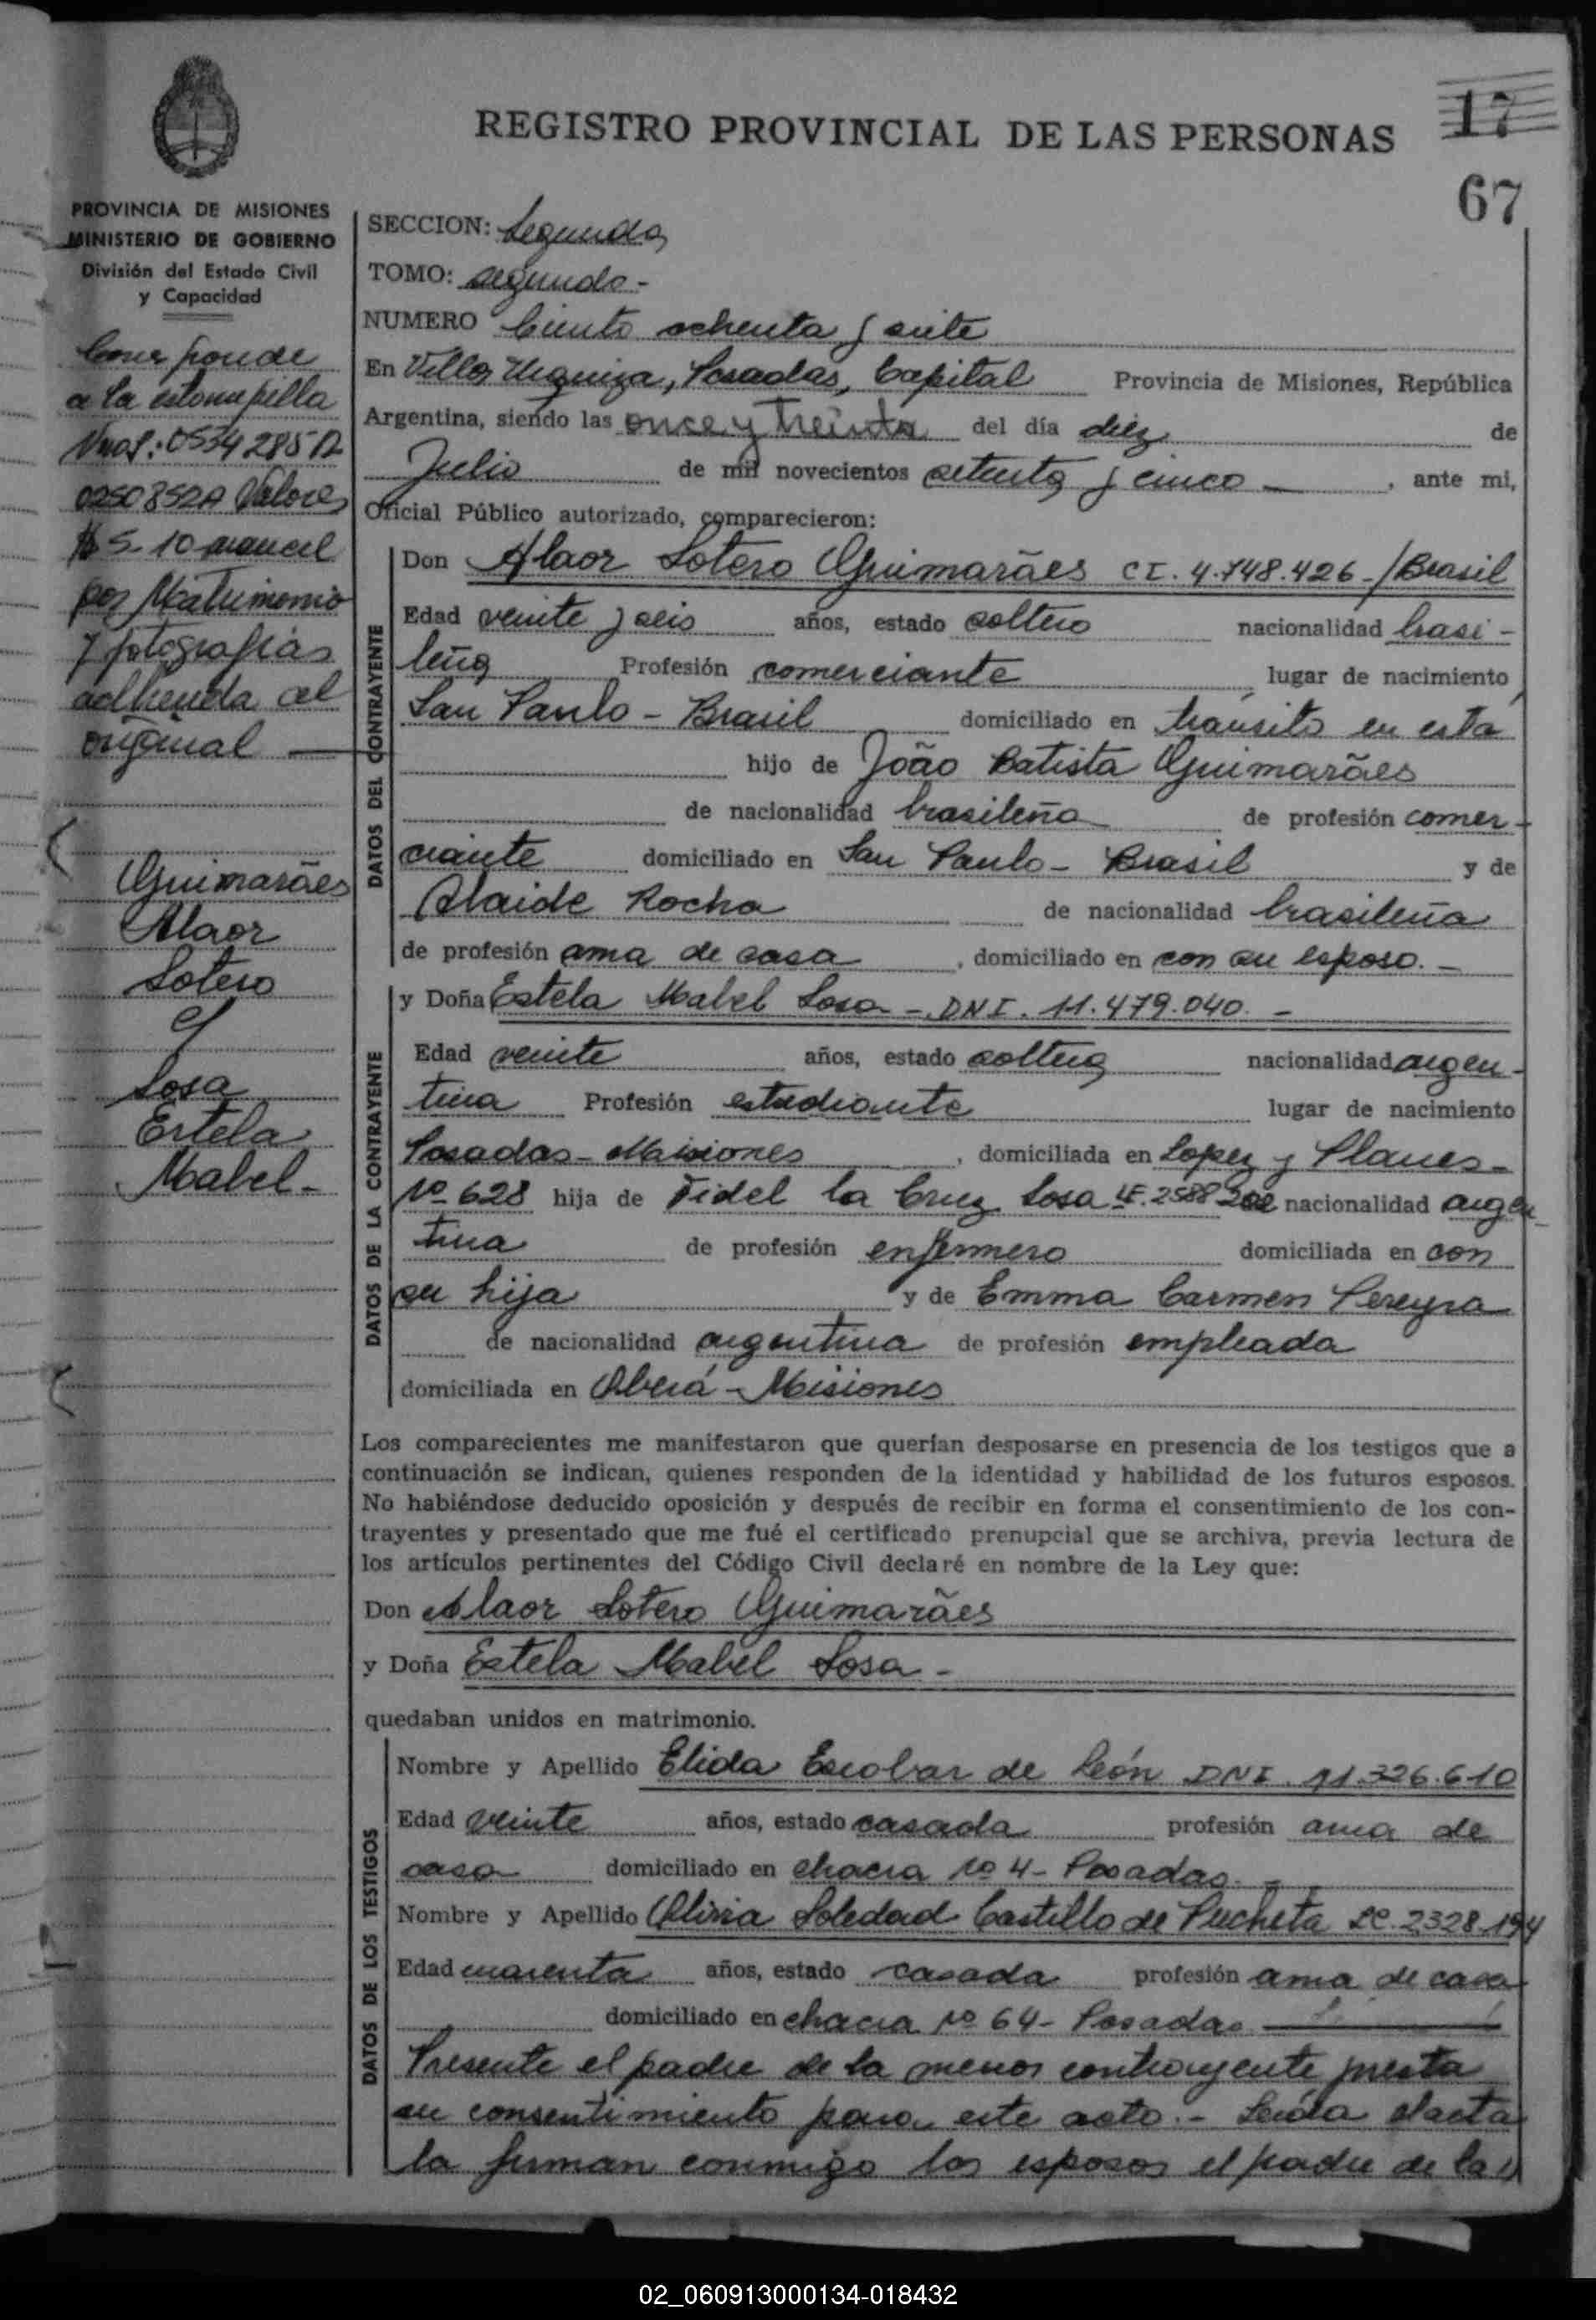 17
REGISTRO PROVINCIAL DE LAS PERSONAS
67
PROVINCIA DE MISIONES
MINISTERIO DE GOBIERNO
División del Estado Civil
y Capacidad
Corresponde
a la estampilla
Nros: 0534285 A
0250852A Valores
$ 5-10 arancel
por Matrimonio
y fotografías
adherida al
original
Guimarães
Alaor
Sotero
y
Sosa
Estela
Mabel-
SECCION: Segunda
TOMO: segundo-
NUMERO Ciento ochenta y siete
En Villa Urquiza, Posadas, Capital Provincia de Misiones, República
Argentina, siendo las once y treinta del día diez de
Julio de mil novecientos setenta y cinco , ante mi,
Oficial Público autorizado, comparecieron:
DATOS DEL CONTRAYENTE
Don Alaor Sotero Guimarães CI. 4.748.426-/Brasil
Edad veinte y seis años, estado soltero nacionalidad brasi-
leña Profesión comerciante lugar de nacimiento
San Paulo - Brasil domiciliado en tránsito en esta
hijo de João Batista Guimarães
de nacionalidad brasileña de profesión comer-
ciante domiciliado en San Paulo - Brasil y de
Alaide Rocha de nacionalidad brasileña
de profesión ama de casa , domiciliado en con su esposo.-
DATOS DE LA CONTRAYENTE
y Doña Estela Mabel Sosa - DNI. 11.479.040.-
Edad veinte años, estado soltera nacionalidad argen-
tina Profesión estudiante lugar de nacimiento
Posadas - Misiones , domiciliada en Lopez y Planes-
Nº 628 hija de Fidel la Cruz Sosa LE. 2588 nacionalidad argen-
tina de profesión enfermero domiciliada en con
su hija y de Emma Carmen Pereyra
de nacionalidad argentina de profesión empleada
domiciliada en Oberá - Misiones
Los comparecientes me manifestaron que querían desposarse en presencia de los testigos que a
continuación se indican, quienes responden de la identidad y habilidad de los futuros esposos.
No habiéndose deducido oposición y después de recibir en forma el consentimiento de los con-
trayentes y presentado que me fué el certificado prenupcial que se archiva, previa lectura de
los artículos pertinentes del Código Civil declaré en nombre de la Ley que:
Don Alaor Sotero Guimarães
y Doña Estela Mabel Sosa -
quedaban unidos en matrimonio.
DATOS DE LOS TESTIGOS
Nombre y Apellido Elida Escobar de León DNI 11.326.610
Edad veinte años, estado casada profesión ama de
casa domiciliado en chacra Nº 4- Posadas.-
Nombre y Apellido Olivia Soledad Castillo de Pucheta LC. 2328.194
Edad cuarenta años, estado casada profesión ama de casa
domiciliado en chacra Nº 64- Posadas
Presente el padre de la menor contrayente presta
su consentimiento para este acto.- Leída el acta
la firman conmigo los esposos el padre de la
02_060913000134-018432